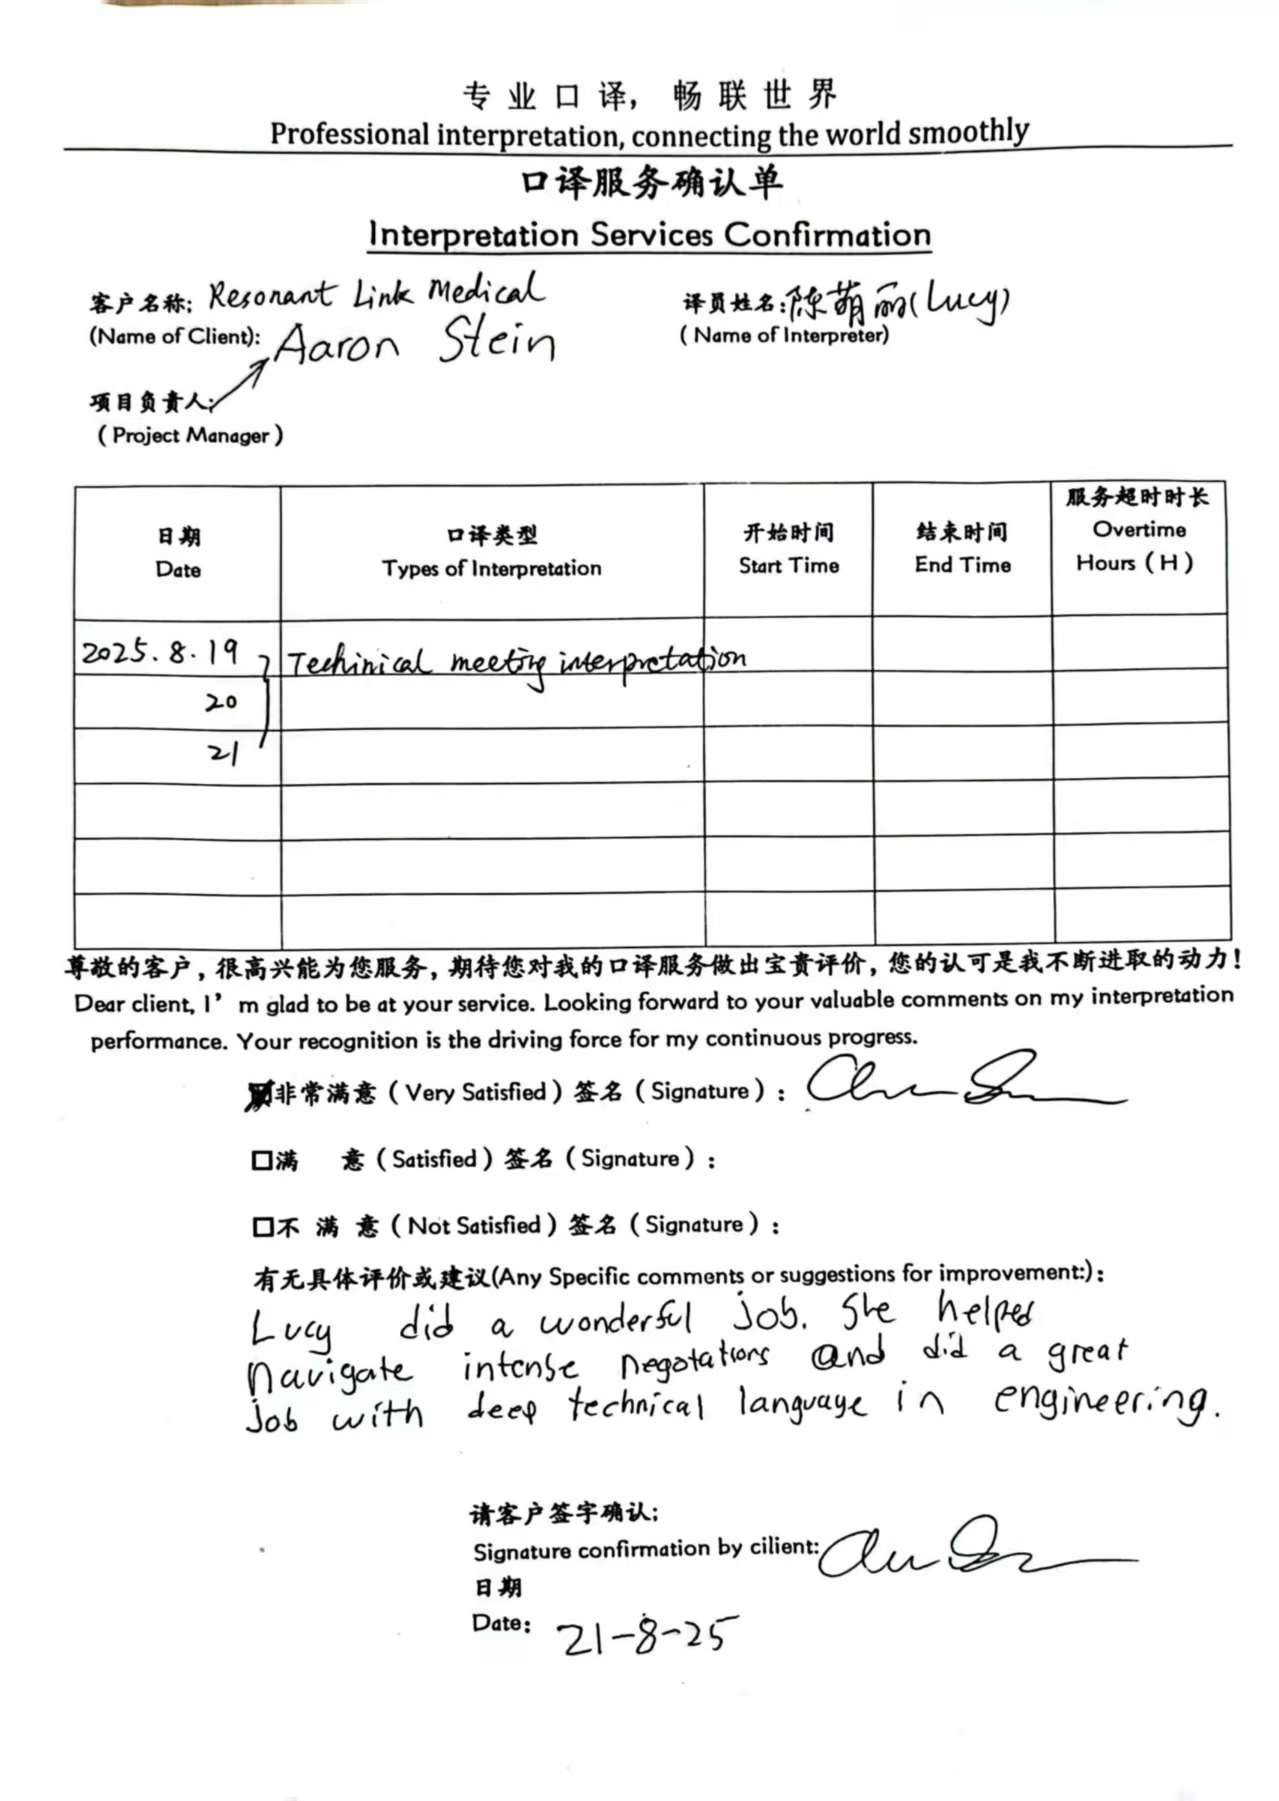 专业口译，畅联世界
Professional interpretation, connecting the world smoothly
口译服务确认单
Interpretation Services Confirmation
客户名称: Resonant Link Medical
(Name of Client): Aaron Stein
译员姓名:陈萌丽(Lucy)
(Name of Interpreter)
项目负责人:
(Project Manager)
日期
Date
口译类型
Types of Interpretation
开始时间
Start Time
结束时间
End Time
服务超时时长
Overtime
Hours (H)
2025.8.19 Techinical meeting interpretation
20
21
尊敬的客户，很高兴能为您服务，期待您对我的口译服务做出宝贵评价，您的认可是我不断进取的动力！
Dear client, I’m glad to be at your service. Looking forward to your valuable comments on my interpretation
performance. Your recognition is the driving force for my continuous progress.
非常满意 (Very Satisfied) 签名 (Signature):
满 意 (Satisfied) 签名 (Signature):
不 满 意 (Not Satisfied) 签名 (Signature):
有无具体评价或建议(Any Specific comments or suggestions for improvement:):
Lucy did a wonderful job. She helped
navigate intense negotations and did a great
job with deep technical language in engineering.
请客户签字确认:
Signature confirmation by cilient:
日期
Date: 21-8-25